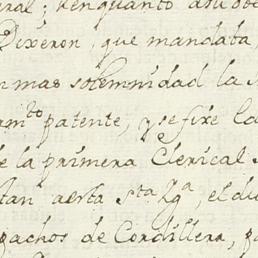 ral; en quanto a su obe
Dixeron, que mandata
mas solemnidad la
mto patente, y se fixe la
e la primera Clerical
tan aesta Sta Yga, el di
pachos de Cordillera, p